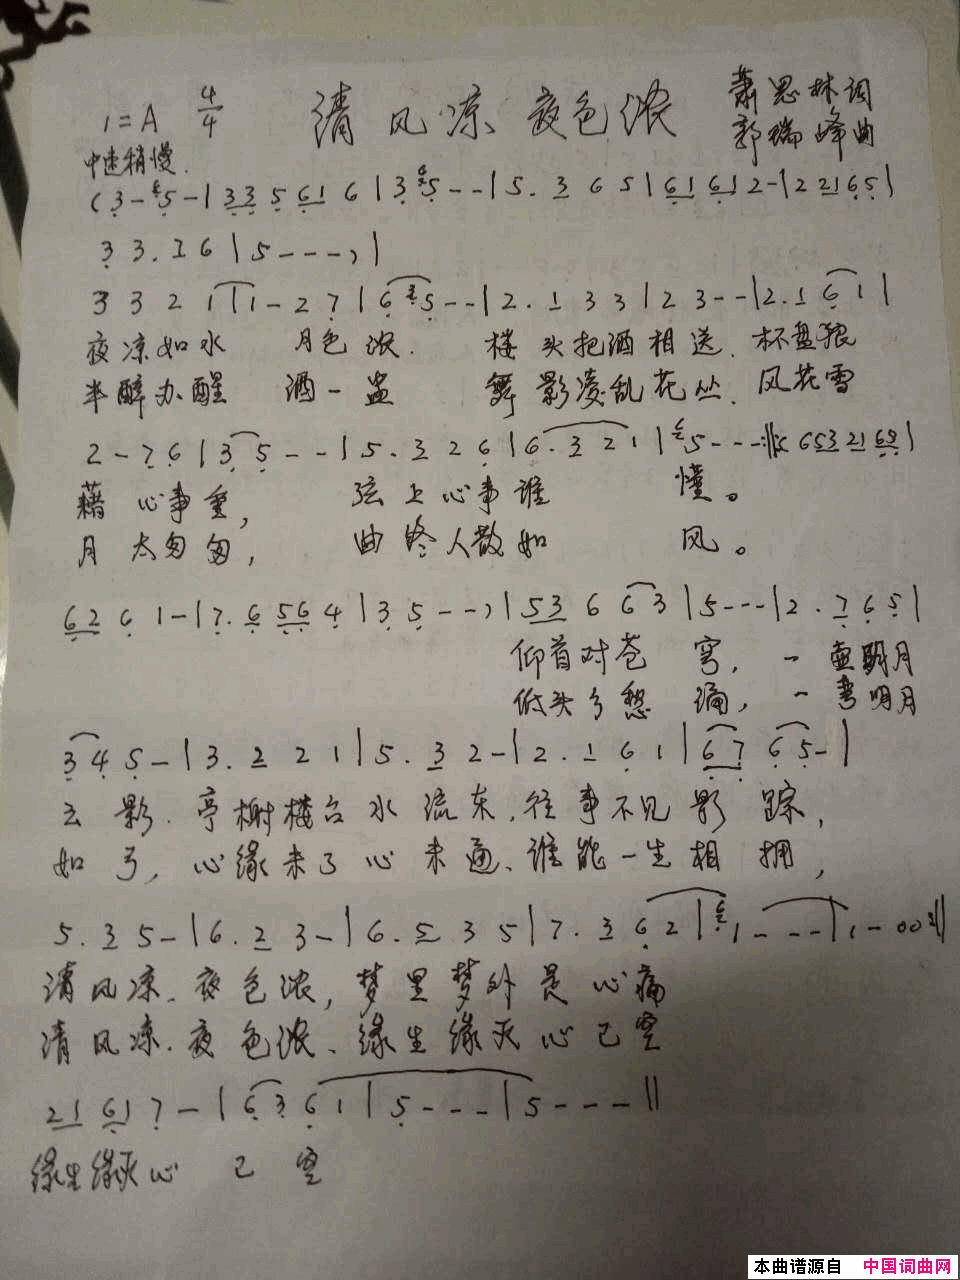 1=A 4/4 清风凉夜色浓 萧思林词
中速稍慢. 郭瑞峰曲
(3-5-|33 5 61 6|3 5--|5. 3 6 5|61 61 2-|2 2165|
3 3. 2 6|5---,)|
3 3 2 1|1-2 7|6 5--|2. 1 3 3|2 3--|2. 1 6 1|
夜凉如水 月色浓. 楼头把酒相送. 杯盘狼
半醉办醒 酒一盅 舞影凌乱花丛. 风花雪
2-7 6|3 5--|5. 3 2 6|6. 3 2 1|5---:‖ 6 53 21 65|
藉 心事重, 弦上心事谁 懂。
月太匆匆, 曲终人散如 风。
62 6 1-|7. 6 56 4|3 5--,)|53 6 6 3|5---|2. 7 6 5|
仰首对苍 穹, 一壶明月
低头乡愁 涌, 一弯明月
3 4 5-|3. 2 2 1|5. 3 2-|2. 1 6 1|67 6 5-|
云影. 亭榭楼台水流东, 往事不见影踪,
如弓, 心缘未了心未通、谁能一生相拥,
5. 3 5-|6. 2 3-|6. 5 3 5|7. 3 6 2|1---|1-00:‖
清风凉. 夜色浓, 梦里梦外是心痛
清风凉. 夜色浓、缘生缘灭心已空
21 61 7-|6 3 6 1|5---|5---‖
缘生缘灭心 已 空
本曲谱源自 中国词曲网